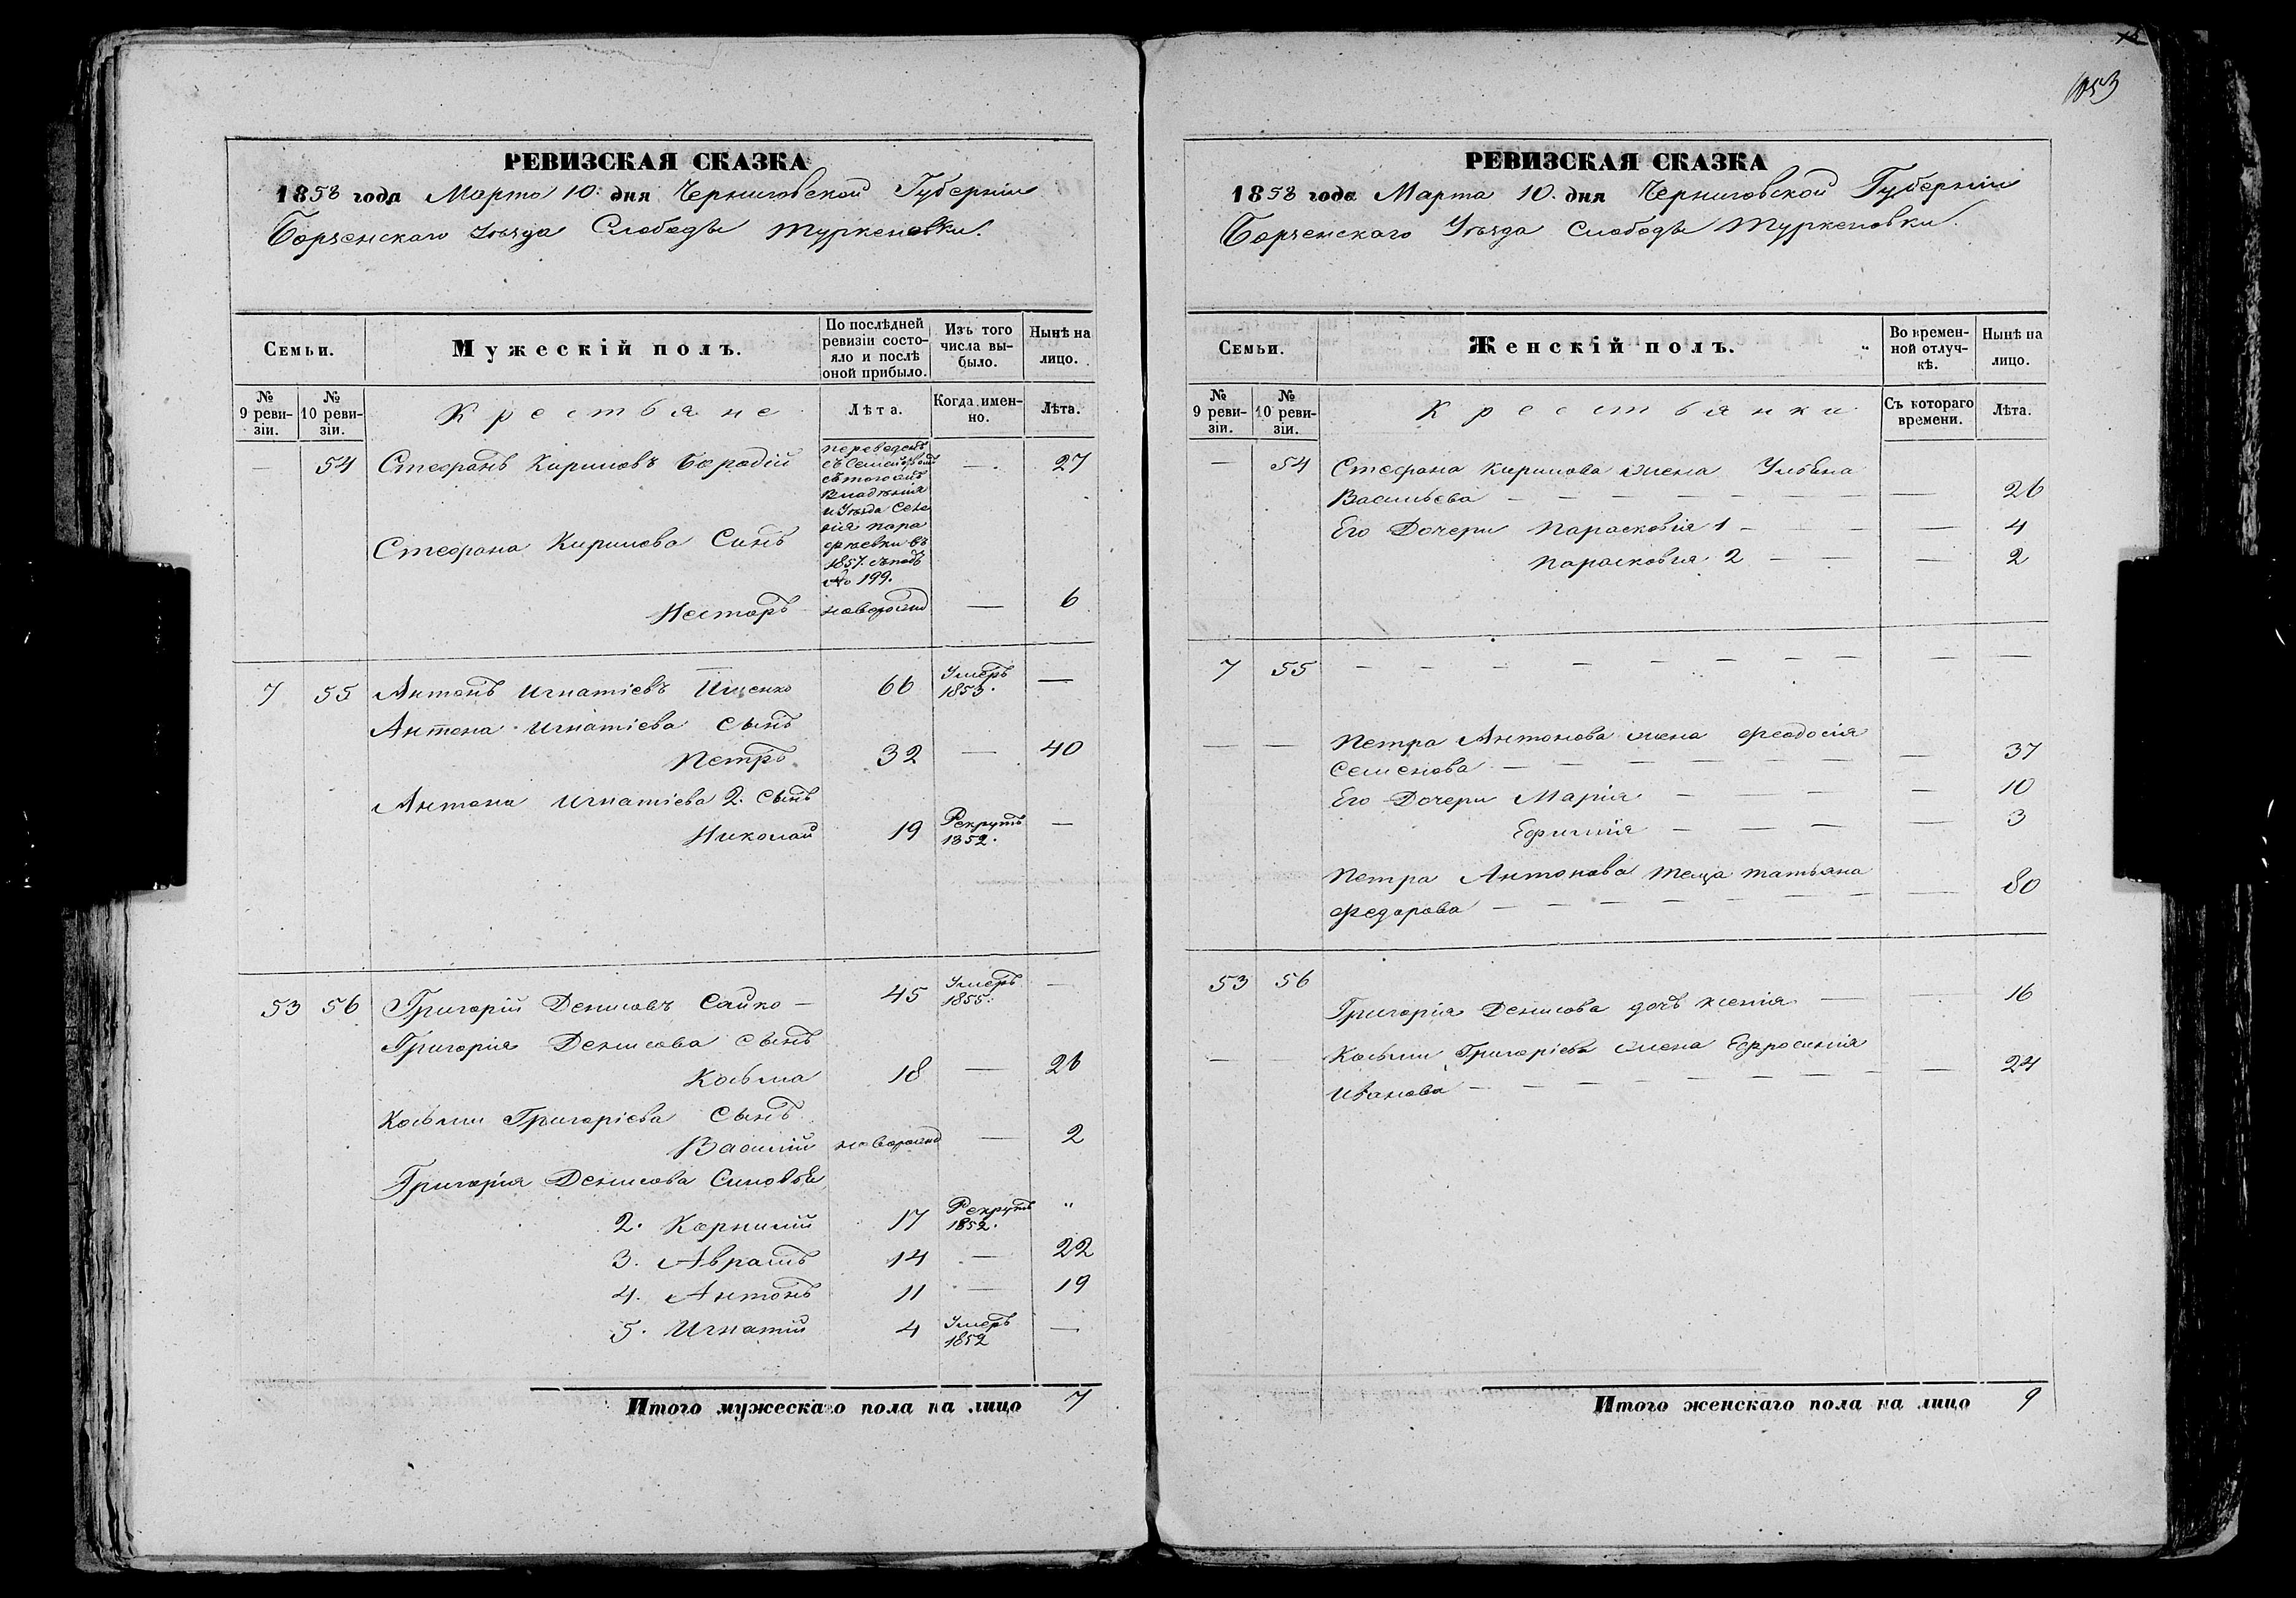 РЕВИЗСКАЯ СКАЗКА
1858 года Марта 10. дня Черниговской Губернии
Борзенскаго Уѣзда Слободы Туркеновки.
Семьи.
Мужескій полъ.
По послѣдней ревизіи состояло и послѣ оной прибыло.
Изъ того числа выбыло.
Нынѣ на лицо.
№ 9 ревизіи.
№ 10 ревизіи.
Крестьяне
Лѣта.
Когда именно.
Лѣта.
— 54 Стефанъ Кириловъ Бородій — 27
переведенъ
съ семействомъ
с тогожъ
Владѣнія
и Уѣзда Села
1857.
№ 199.
Стефана Кирилова Синъ
Несторъ новорожд — 6
7 55 Антонъ Игнатіевъ Ищенко 66 Умеръ 1853. —
Антона Игнатіева сынъ
Петръ 32 — 40
Антона Игнатіева 2. сынъ
Николай 19 Рекрутъ 1852. —
53 56 Григорій Денисовъ Сайко — 45 Умеръ 1855. —
Григорія Денисова сынъ
Козьма 18 — 26
Козьми Григоріева сынъ
Василій новорожд — 2
Григорія Денисова Синовья
2. Корнилій 17 Рекрутъ 1852. "
3. Аврамъ 14 — 22
4. Антонъ 11 — 19
5. Игнатій 4 Умеръ 1852 —
Итого мужескаго пола на лицо 7
1053
РЕВИЗСКАЯ СКАЗКА
1858 года Марта 10. дня Черниговской Губерніи
Борзенскаго Уѣзда Слободы Туркеновки.
Семьи.
Женскій полъ.
Во временной отлучкѣ.
Нынѣ на лицо.
№ 9 ревизіи.
№ 10 ревизіи.
Крестьянки
Съ котораго времени.
Лѣта.
— 54 Стефана Кирилова жена Ульяна
Васильева — — 26
Его Дочери Парасковія 1 — — 4
Парасковія 2 — — 2
7 55 — — —
— — Петра Антонова жена Феодосія
Семенова — — 37
Его Дочери Марія — — 10
Ефимія — — 3
Петра Антонова теща Татьяна
Федорова — — 80
53 56
Григорія Денисова дочь Ксенія — — 16
— — Козьми Григоріева жена Ефросинія
Иванова — — 24
Итого женскаго пола на лицо 9